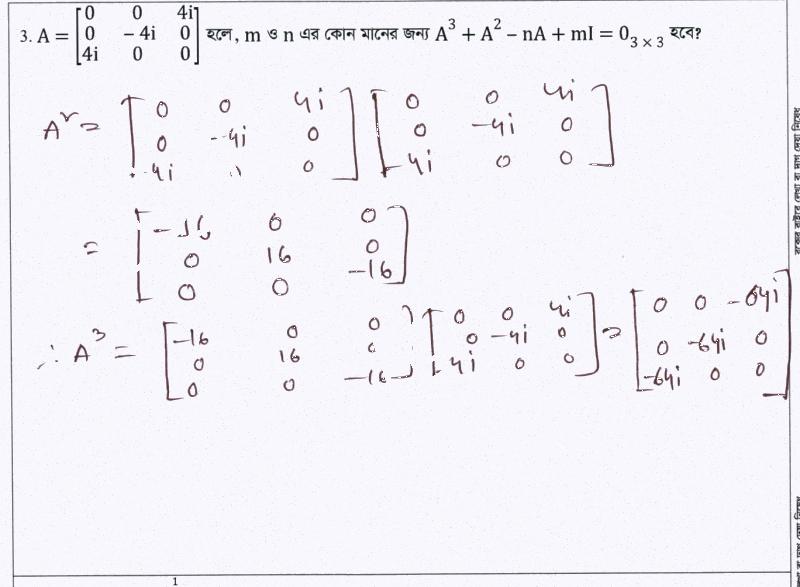 3. A = [0 0 4i; 0 - 4i 0; 4i 0 0] হলে, m ও n এর কোন মানের জন্য A³ + A² − nA + mI = 0₃ × ₃ হবে?
A² = [0 0 4i; 0 -4i 0; 4i 0 0] [0 0 4i; 0 -4i 0; 4i 0 0]
= [-16 0 0; 0 16 0; 0 0 -16]
∴ A³ = [-16 0 0; 0 16 0; 0 0 -16] [0 0 4i; 0 -4i 0; 4i 0 0] = [0 0 -64i; 0 -64i 0; -64i 0 0]
1